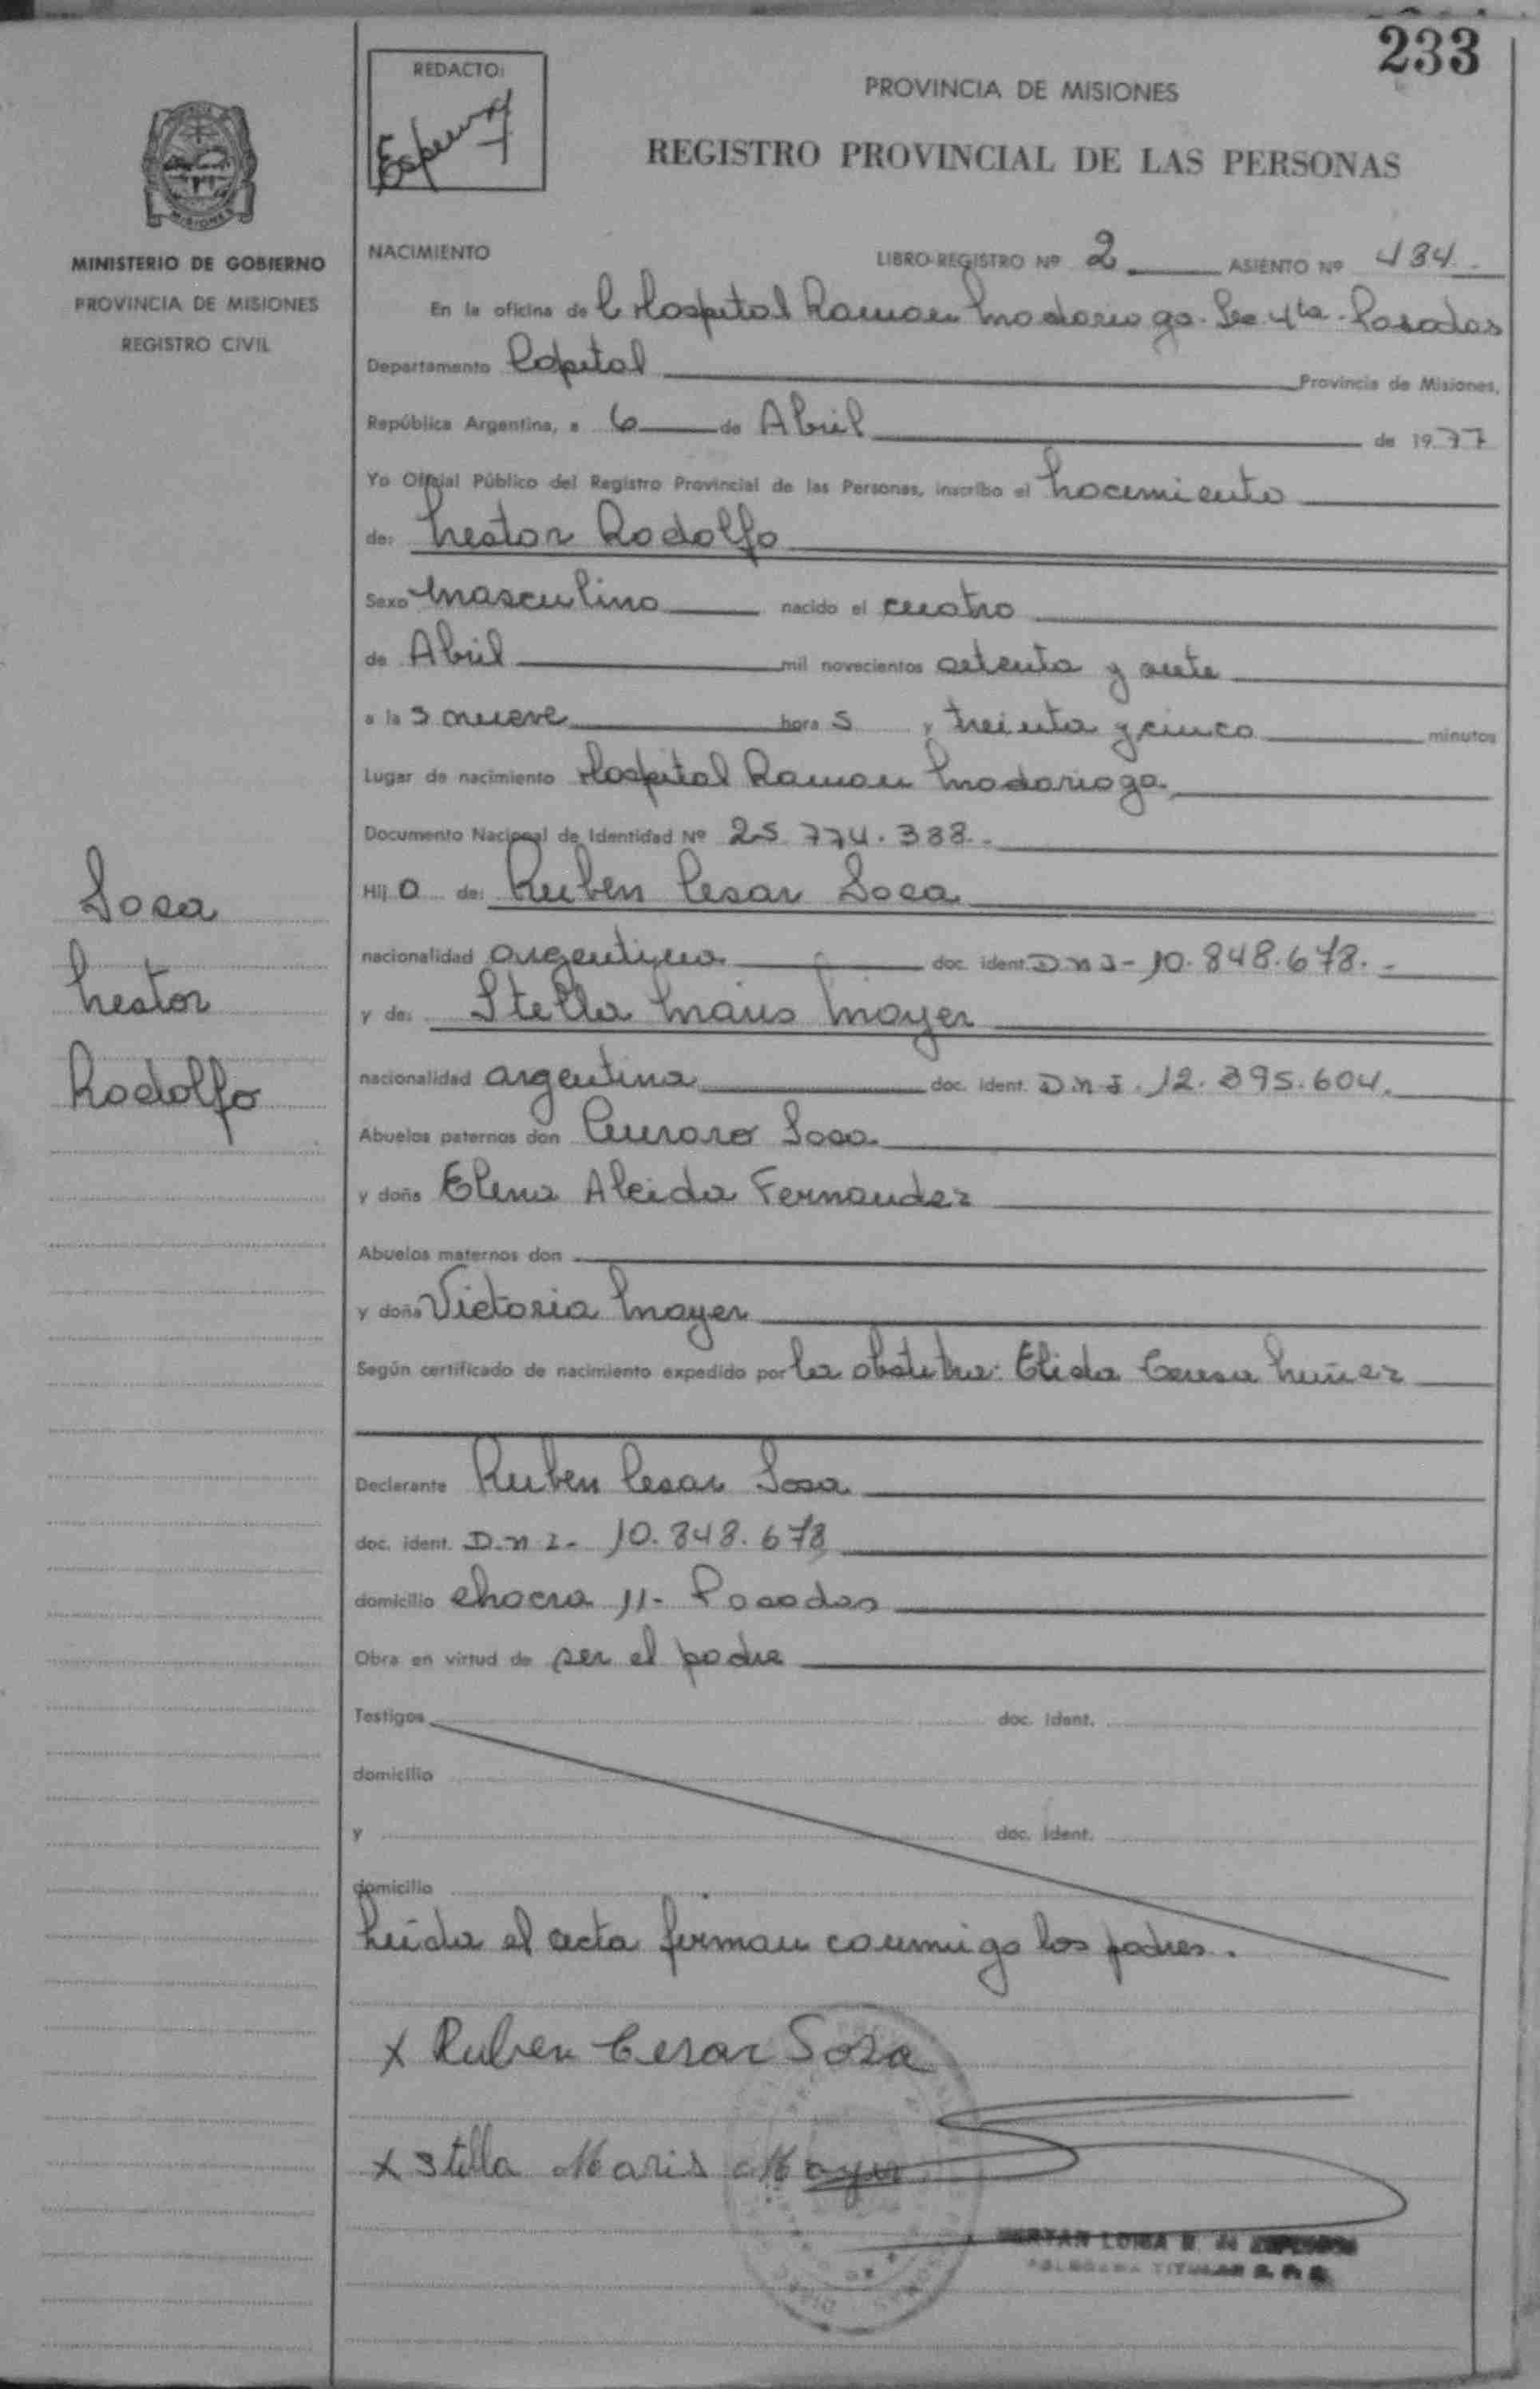 233
REDACTO:
PROVINCIA DE MISIONES
REGISTRO PROVINCIAL DE LAS PERSONAS
MISIONES
MINISTERIO DE GOBIERNO
PROVINCIA DE MISIONES
REGISTRO CIVIL
NACIMIENTO
LIBRO-REGISTRO Nº 2 ASIENTO Nº 434
En la oficina de Hospital Ramon Madariaga Sec 4ta Posadas
Departamento Capital Provincia de Misiones,
República Argentina, a 6 de Abril de 1977
Yo Oficial Público del Registro Provincial de las Personas, inscribo el Nacimiento
de: Nestor Rodolfo
Sexo Masculino nacido el cuatro
de Abril mil novecientos setenta y siete
a las nueve horas y treinta y cinco minutos
Lugar de nacimiento Hospital Ramon Madariaga
Documento Nacional de Identidad Nº 25.774.388.-
Hijo de: Ruben Cesar Sosa
nacionalidad argentina doc. ident. DNI- 10.848.678.-
y de: Stella Maris Mayer
nacionalidad argentina doc. ident. D.N.I. 12.395.604.
Abuelos paternos don Sosa
y doña Elena Aleida Fernandez
Abuelos maternos don
y doña Victoria Mayer
Según certificado de nacimiento expedido por la obstetra: Elida Teresa Nuñez
Declarante Ruben Cesar Sosa
doc. ident. D.N.I- 10.848.678
domicilio chacra 11- Posadas
Obra en virtud de ser el padre
Testigos doc. ident.
domicilio
y doc. ident.
domicilio
Leida el acta firman conmigo los padres.
x Ruben Cesar Sosa
x Stella Maris Mayer
Sosa
Nestor
Rodolfo
TITULAR